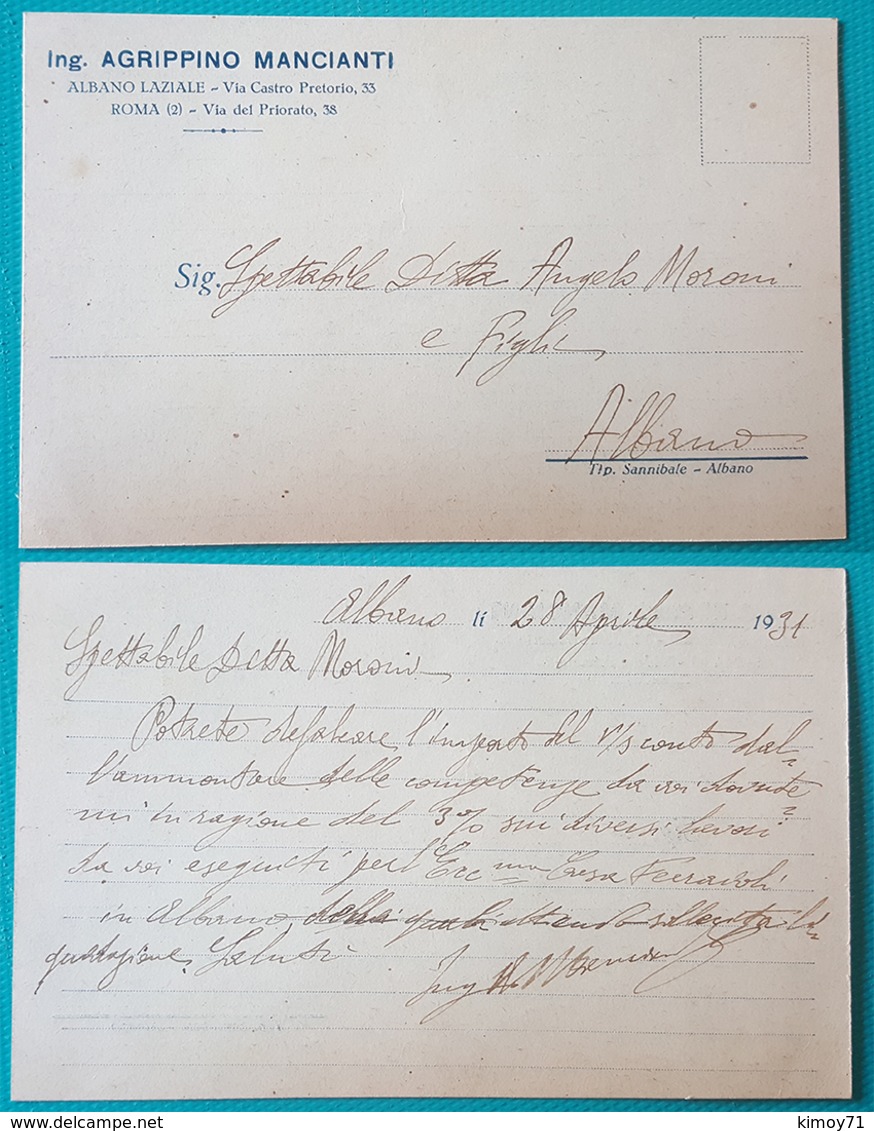 Ing. AGRIPPINO MANCIANTI
ALBANO LAZIALE - Via Castro Pretorio, 33
ROMA (2) - Via del Priorato, 38
Sig. Spettabile Ditta Angelo Moroni
e Figli
Albano
Tip. Sannibale - Albano
Albano lì 28 Aprile 1931
Spettabile Ditta Moroni
Potrete defalcare l'importo del v/sconto dal=
l'ammontare delle competenze da voi dovute=
mi in ragione del 3% sui diversi lavori
da voi eseguiti per l'Ecc.ma Casa Ferraioli
in Albano, delle quali attendo sollecita li=
quidazione. Saluti
Ing A. Mancianti
delcampe.net
kimoy71